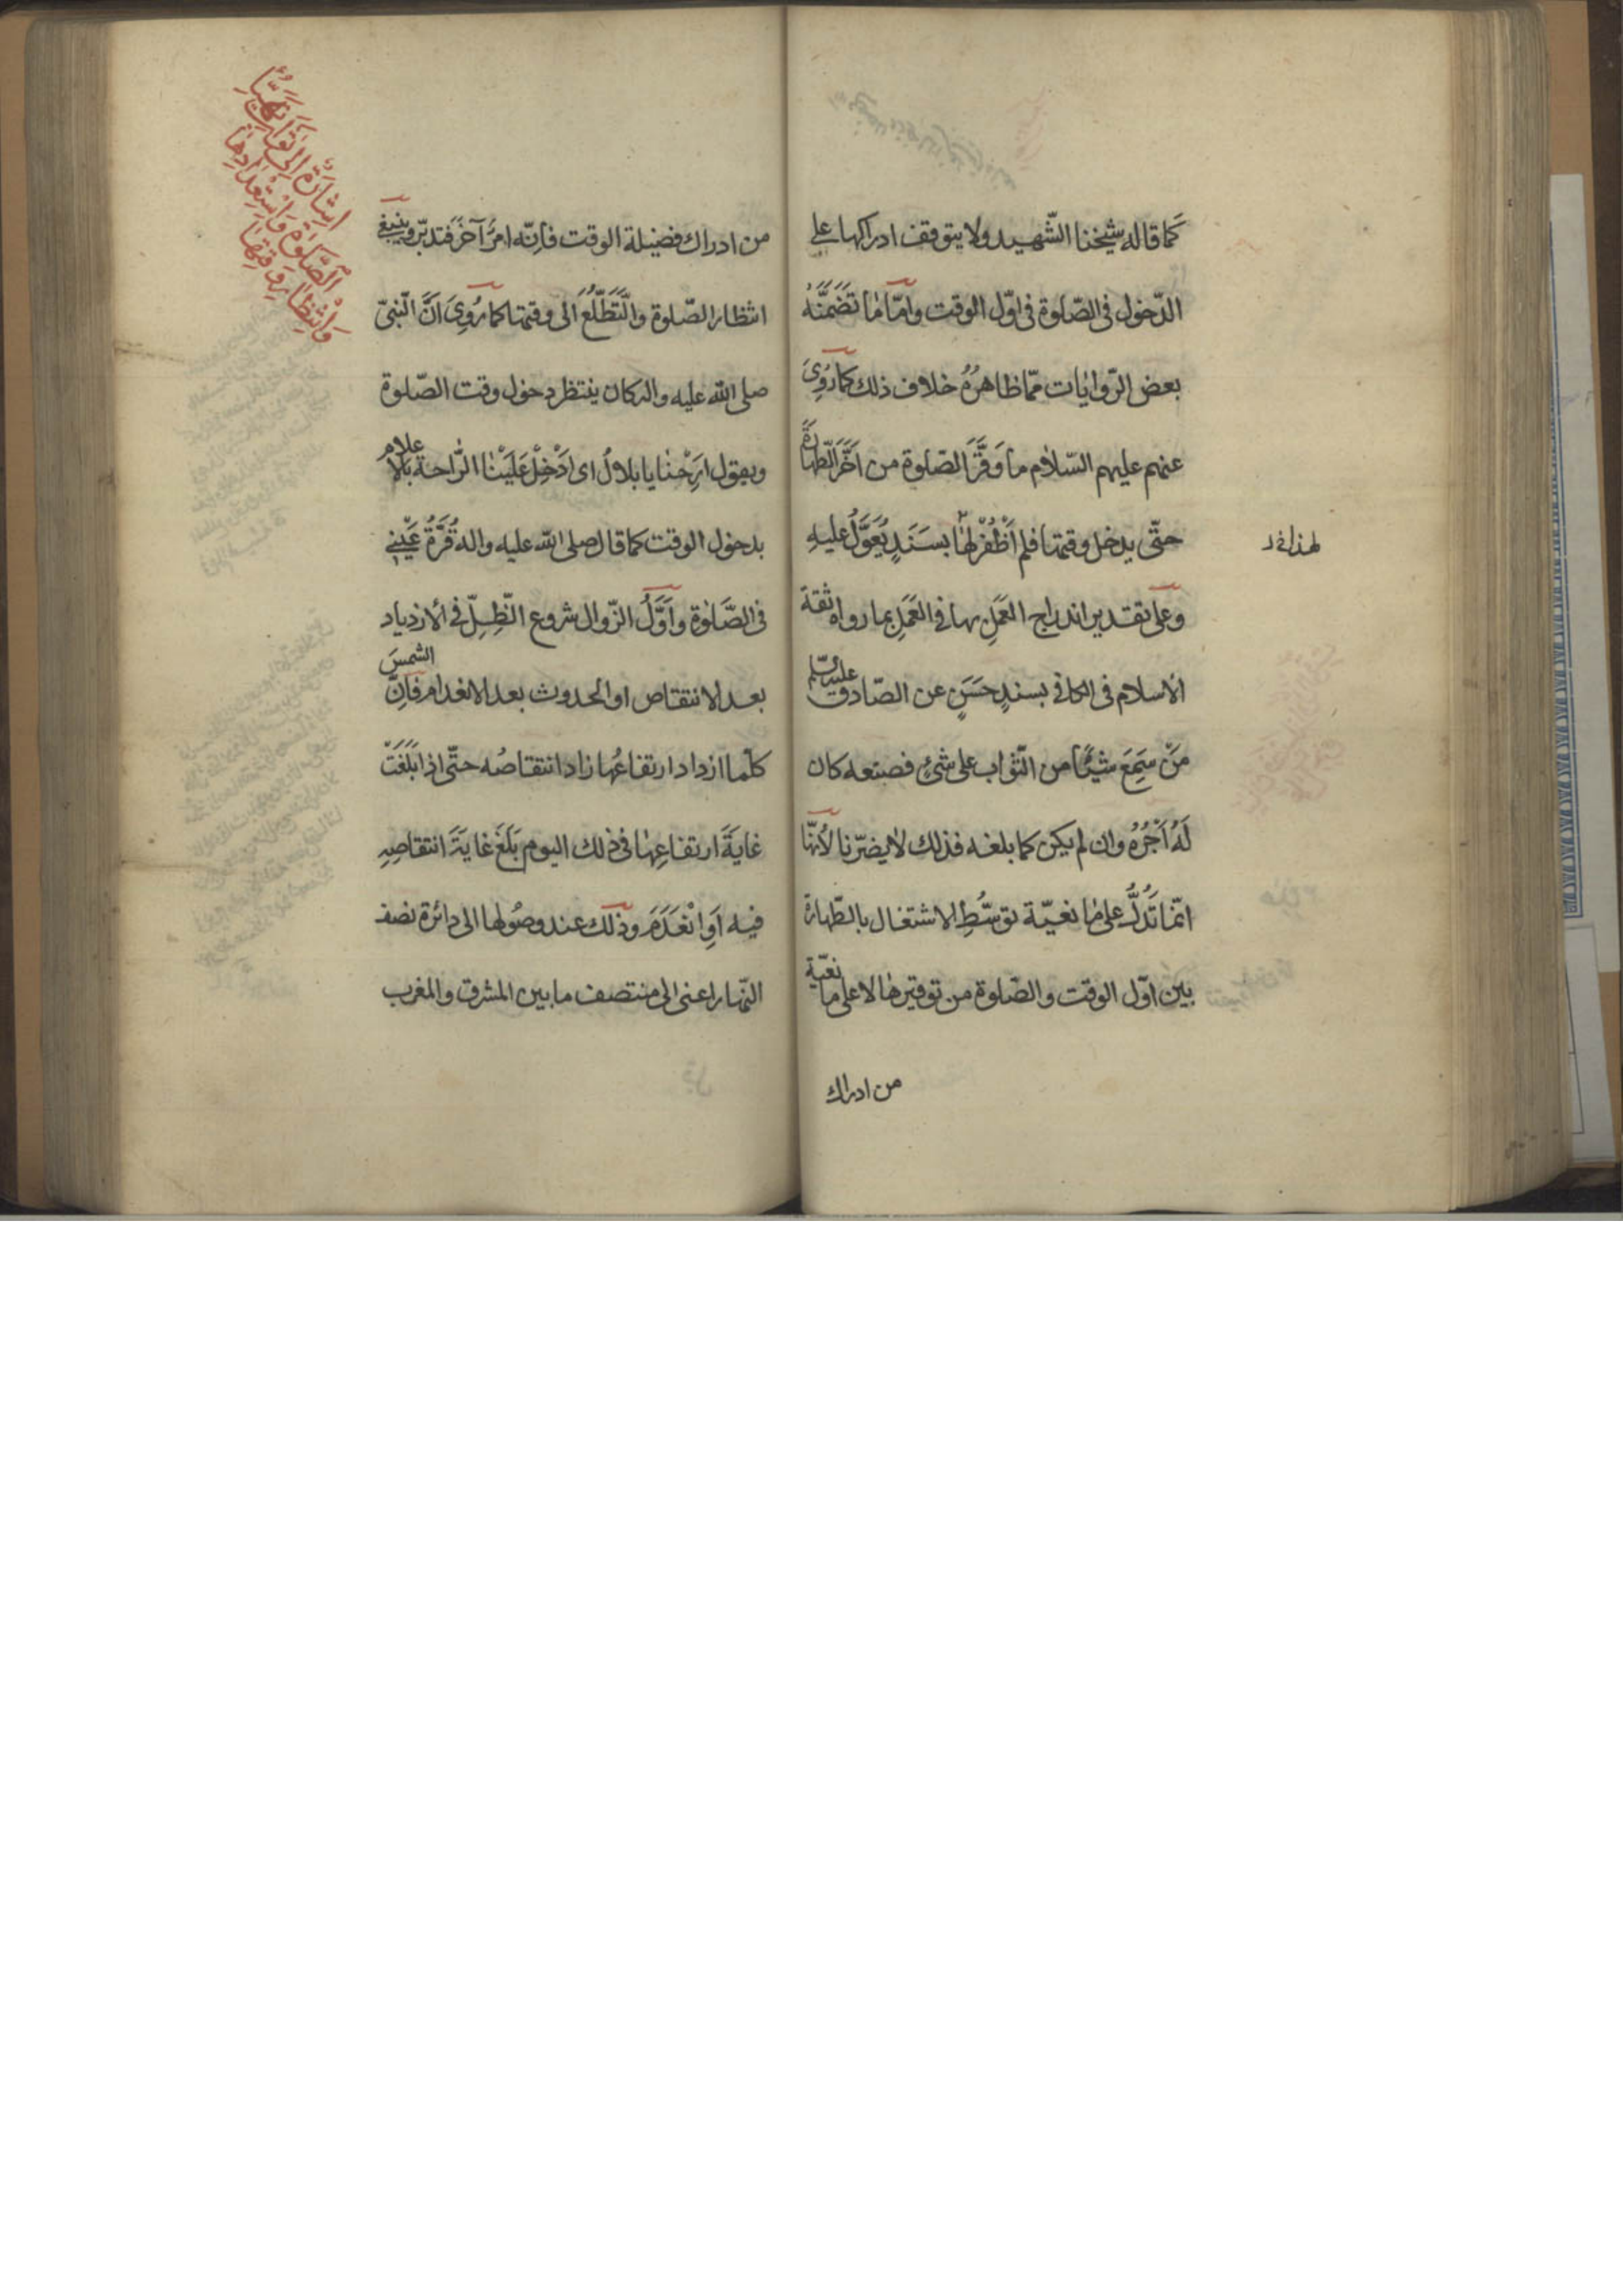 كَما قاله شيخنا الشّهيد ولا يتوقف ادراكها على
الدّخول فى الصّلوة فى اوّل الوقت وامّا مٰا تَضَمَّنَهُ
بعض الرّوايٰات ممّا ظاهرُهُ خلاف ذلك كما رُوِىَ
عنهم عليهم السّلام مٰا وَقَّرَ الصّلوة من اَخَّرَ الطّهٰارَةَ
حتّى يدخل وقتها فلم اَظْفُرْ لهٰا بسَنَدٍ يُعَوَّلُ عليهِ
وعلى تقدير اندراج العَمَلِ بها فى العَمَلِ بما رواه ثقة
الاسلام فى الكافى بسندٍ حَسَنٍ عن الصّادق عليه السّلم
مَنْ سَمِعَ شَيْئًا من الثّواب على شئٍ فصنعه كان
لَهُ اَجْرُهُ وان لم يكن كما بلغه فذلك لايضرّنا لأنّها
انّما تَدُلُّ على مٰا نعيّة توسُّطِ الاشتغال بالطّهارة
بين اوّل الوقت والصّلوة من توقيرهٰا لا على ما نعيّة
من ادراك
لهذا
من ادراك فضيلة الوقت فاِنّه امرٌ آخَرُ فتدبّر وينبغى
انتظار الصّلوة والتَّطَلُّعُ الى وقتها كما رُوِىَ اَنَّ النّبىّ
صلى الله عليه واله كان ينتظر دخول وقت الصّلوة
ويقول اَرِحْنٰا يا بلالُ اى اَدْخِلْ عَلَيْنٰا الرّاحة بالاعلام
بدخول الوقت كما قال صلى الله عليه واله قُرَّةُ عَيْنِى
فى الصَّلٰوة واَوَّلُ الزّوال شروع الظِّلِّ فى الازدياد
بعد الانتقاص او الحدوث بعد الانعدام فَاِنَّ الشمسَ
كلّما ازداد ارتفاعُها زاد انتقاصُه حتّى اذا بَلَغَتْ
غايَةَ ارتفاعِهٰا فى ذلك اليوم بَلَغَ غايَةَ انتقاصِهِ
فيه اَوِ انْعَدَمَ وذلك عند وصُولها الى دائرة نصف
النّهار اعنى الى منتصف ما بين المشرق والمغرب
اِشَارَةٌ اِلَى تَهَيُّأِ
الصَّلوٰةِ وَاسْتِعْدادِهَا
وَانْتِظَارِ وَقْتِهَا